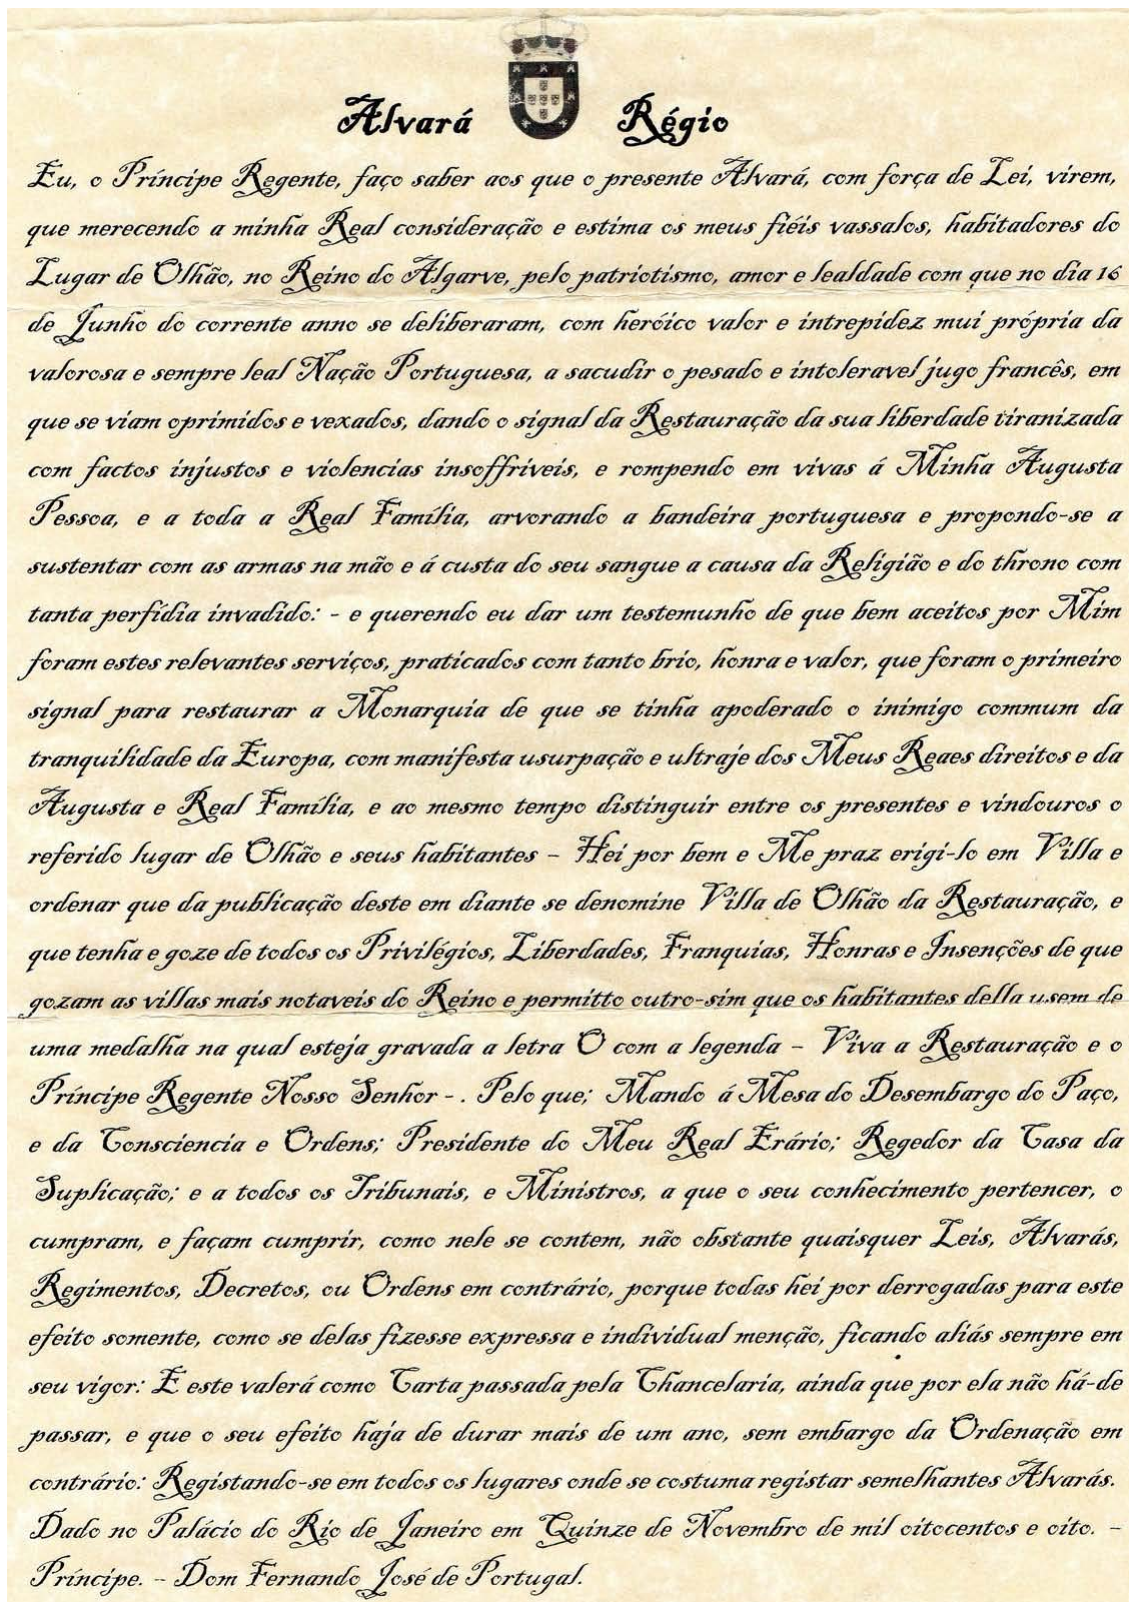 Alvará Régio
Eu, o Príncipe Regente, faço saber aos que o presente Alvará, com força de Lei, virem,
que merecendo a minha Real consideração e estima os meus fiéis vassalos, habitadores do
Lugar de Olhão, no Reino do Algarve, pelo patriotismo, amor e lealdade com que no dia 16
de Junho do corrente anno se deliberaram, com heróico valor e intrepidez mui própria da
valorosa e sempre leal Nação Portuguesa, a sacudir o pesado e intoleravel jugo francês, em
que se viam oprimidos e vexados, dando o signal da Restauração da sua liberdade tiranizada
com factos injustos e violencias insoffríveis, e rompendo em vivas á Minha Augusta
Pessoa, e a toda a Real Família, arvorando a bandeira portuguesa e propondo-se a
sustentar com as armas na mão e á custa do seu sangue a causa da Religião e do throno com
tanta perfídia invadido: - e querendo eu dar um testemunho de que bem aceitos por Mim
foram estes relevantes serviços, praticados com tanto brio, honra e valor, que foram o primeiro
signal para restaurar a Monarquia de que se tinha apoderado o inimigo commum da
tranquilidade da Europa, com manifesta usurpação e ultraje dos Meus Reaes direitos e da
Augusta e Real Família, e ao mesmo tempo distinguir entre os presentes e vindouros o
referido lugar de Olhão e seus habitantes – Hei por bem e Me praz erigi-lo em Villa e
ordenar que da publicação deste em diante se denomine Villa de Olhão da Restauração, e
que tenha e goze de todos os Privilégios, Liberdades, Franquias, Honras e Insenções de que
gozam as villas mais notaveis do Reino e permitto outro-sim que os habitantes della usem de
uma medalha na qual esteja gravada a letra O com a legenda – Viva a Restauração e o
Príncipe Regente Nosso Senhor -. Pelo que; Mando á Mesa do Desembargo do Paço,
e da Consciencia e Ordens; Presidente do Meu Real Erário; Regedor da Casa da
Suplicação; e a todos os Tribunais, e Ministros, a que o seu conhecimento pertencer, o
cumpram, e façam cumprir, como nele se contem, não obstante quaisquer Leis, Alvarás,
Regimentos, Decretos, ou Ordens em contrário, porque todas hei por derrogadas para este
efeito somente, como se delas fizesse expressa e individual menção, ficando aliás sempre em
seu vigor: E este valerá como Carta passada pela Chancelaria, ainda que por ela não há-de
passar, e que o seu efeito haja de durar mais de um ano, sem embargo da Ordenação em
contrário: Registando-se em todos os lugares onde se costuma registar semelhantes Alvarás.
Dado no Palácio do Rio de Janeiro em Quinze de Novembro de mil oitocentos e oito. –
Príncipe. – Dom Fernando José de Portugal.